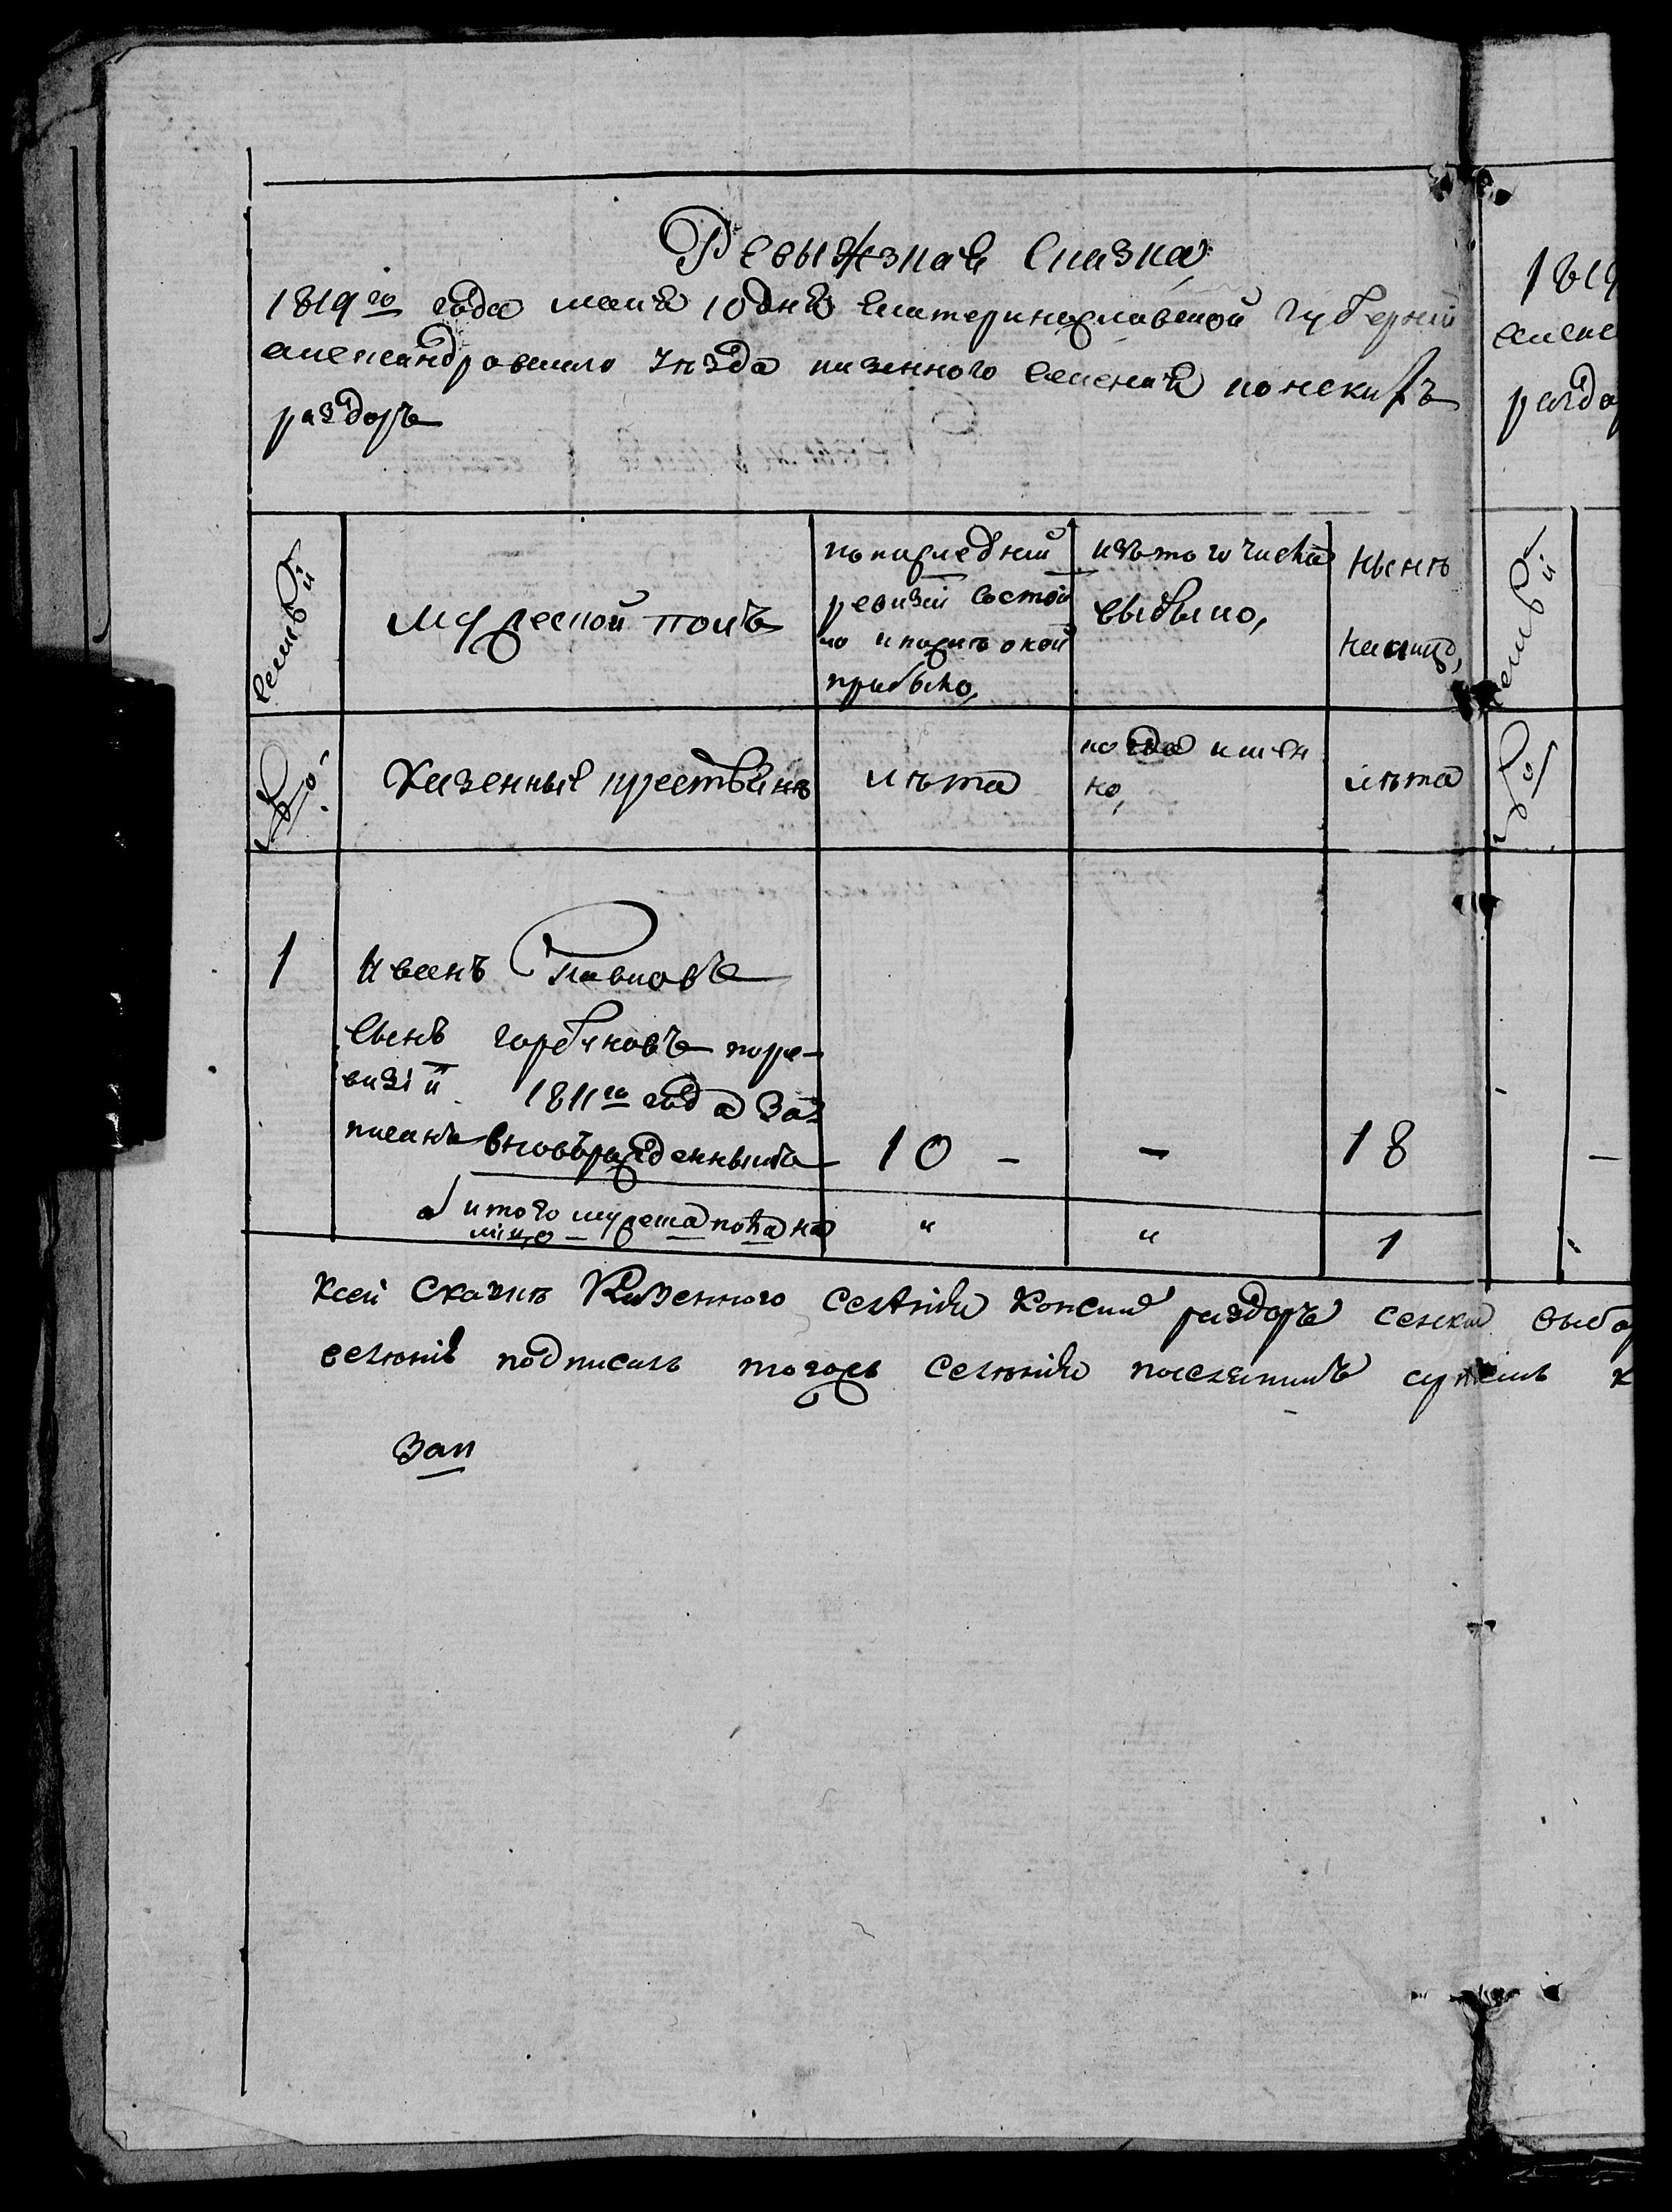 Ревыжзкая Сказка
1819го года маия 10 дня Екатеринославской губерний
александровского уезда казенного селения конскихъ
раздоръ
семьей
мужеской полъ
попоследней
ревизии состоя
ло и после оной
прибыло,
изътого числа
выбыло,
Нынѣ
налицо,
Казенные крестьянѣ
лѣта
когда имен
но,
лѣта
1
Иванъ Павловъ
сынъ горбуновъ поре-
визіи 1811го года за
писанъ вновьрожденнымъ 10 - - 18
итого мужеска пола на
лицо " " 1
Ксей сказкѣ Казенного селения Конских раздоръ селски выбо
селения подписалъ тогожъ селения
Зап
1819
алекс
раздо
семьей